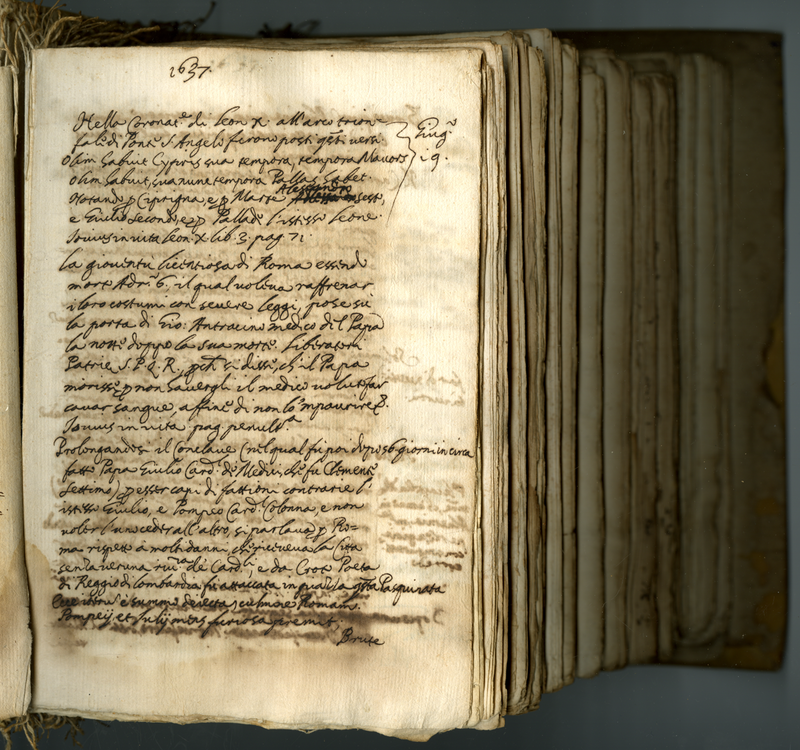 1637.
Nella Coronat.e di Leon X. all'arco trion=
fale di Ponte S. Angelo furono posti q.sti versi
Giug.o
19.
Olim habuit Cypris sua tempora, tempora Mavors
Olim habuit, sua nunc tempora Pallas habet.
Notando p Ciprigna, e p Marte Alessandro sesto,
e Giulio secondo, e p Pallade l'istesso Leone.
Jovius in vita Leon. X. lib. 3. pag. 71.
La gioventù licentiosa di Roma essendo
morto Adr.o 6. il qual voleva raffrenar
i loro costumi con severe leggi, pose sù
la porta di Gio: Antracino medico del Papa
la notte doppo la sua morte. Liberatori
Patrie S. P. Q. R., pch si disse, ch'il Papa
morisse p non havergli il medico voluto far
cavar sangue, affine di non lo impaurire.
Jovius in vita pag. penult.a
Prolongandosi il Conclave (nel qual fu poi dopo 56 giorni in circa
fatto Papa Giulio Card. de Medici, che fu Clemente
settimo) p esser capi di fattioni contrarie l'
istesso Giulio, e Pompeo Card. Colonna, e non
voler l'uno cedere all'altro, si parlava p Ro=
ma rispetto à molti danni, che riceveva la Città
senza veruna de Card.li, e da Croto Poeta
di Reggio di Lombardia fu attaccata in q.sta Pasquinata
è summo deiecta culmine Romam.
Pompeij et Iulij mens furiosa premit.
Brute